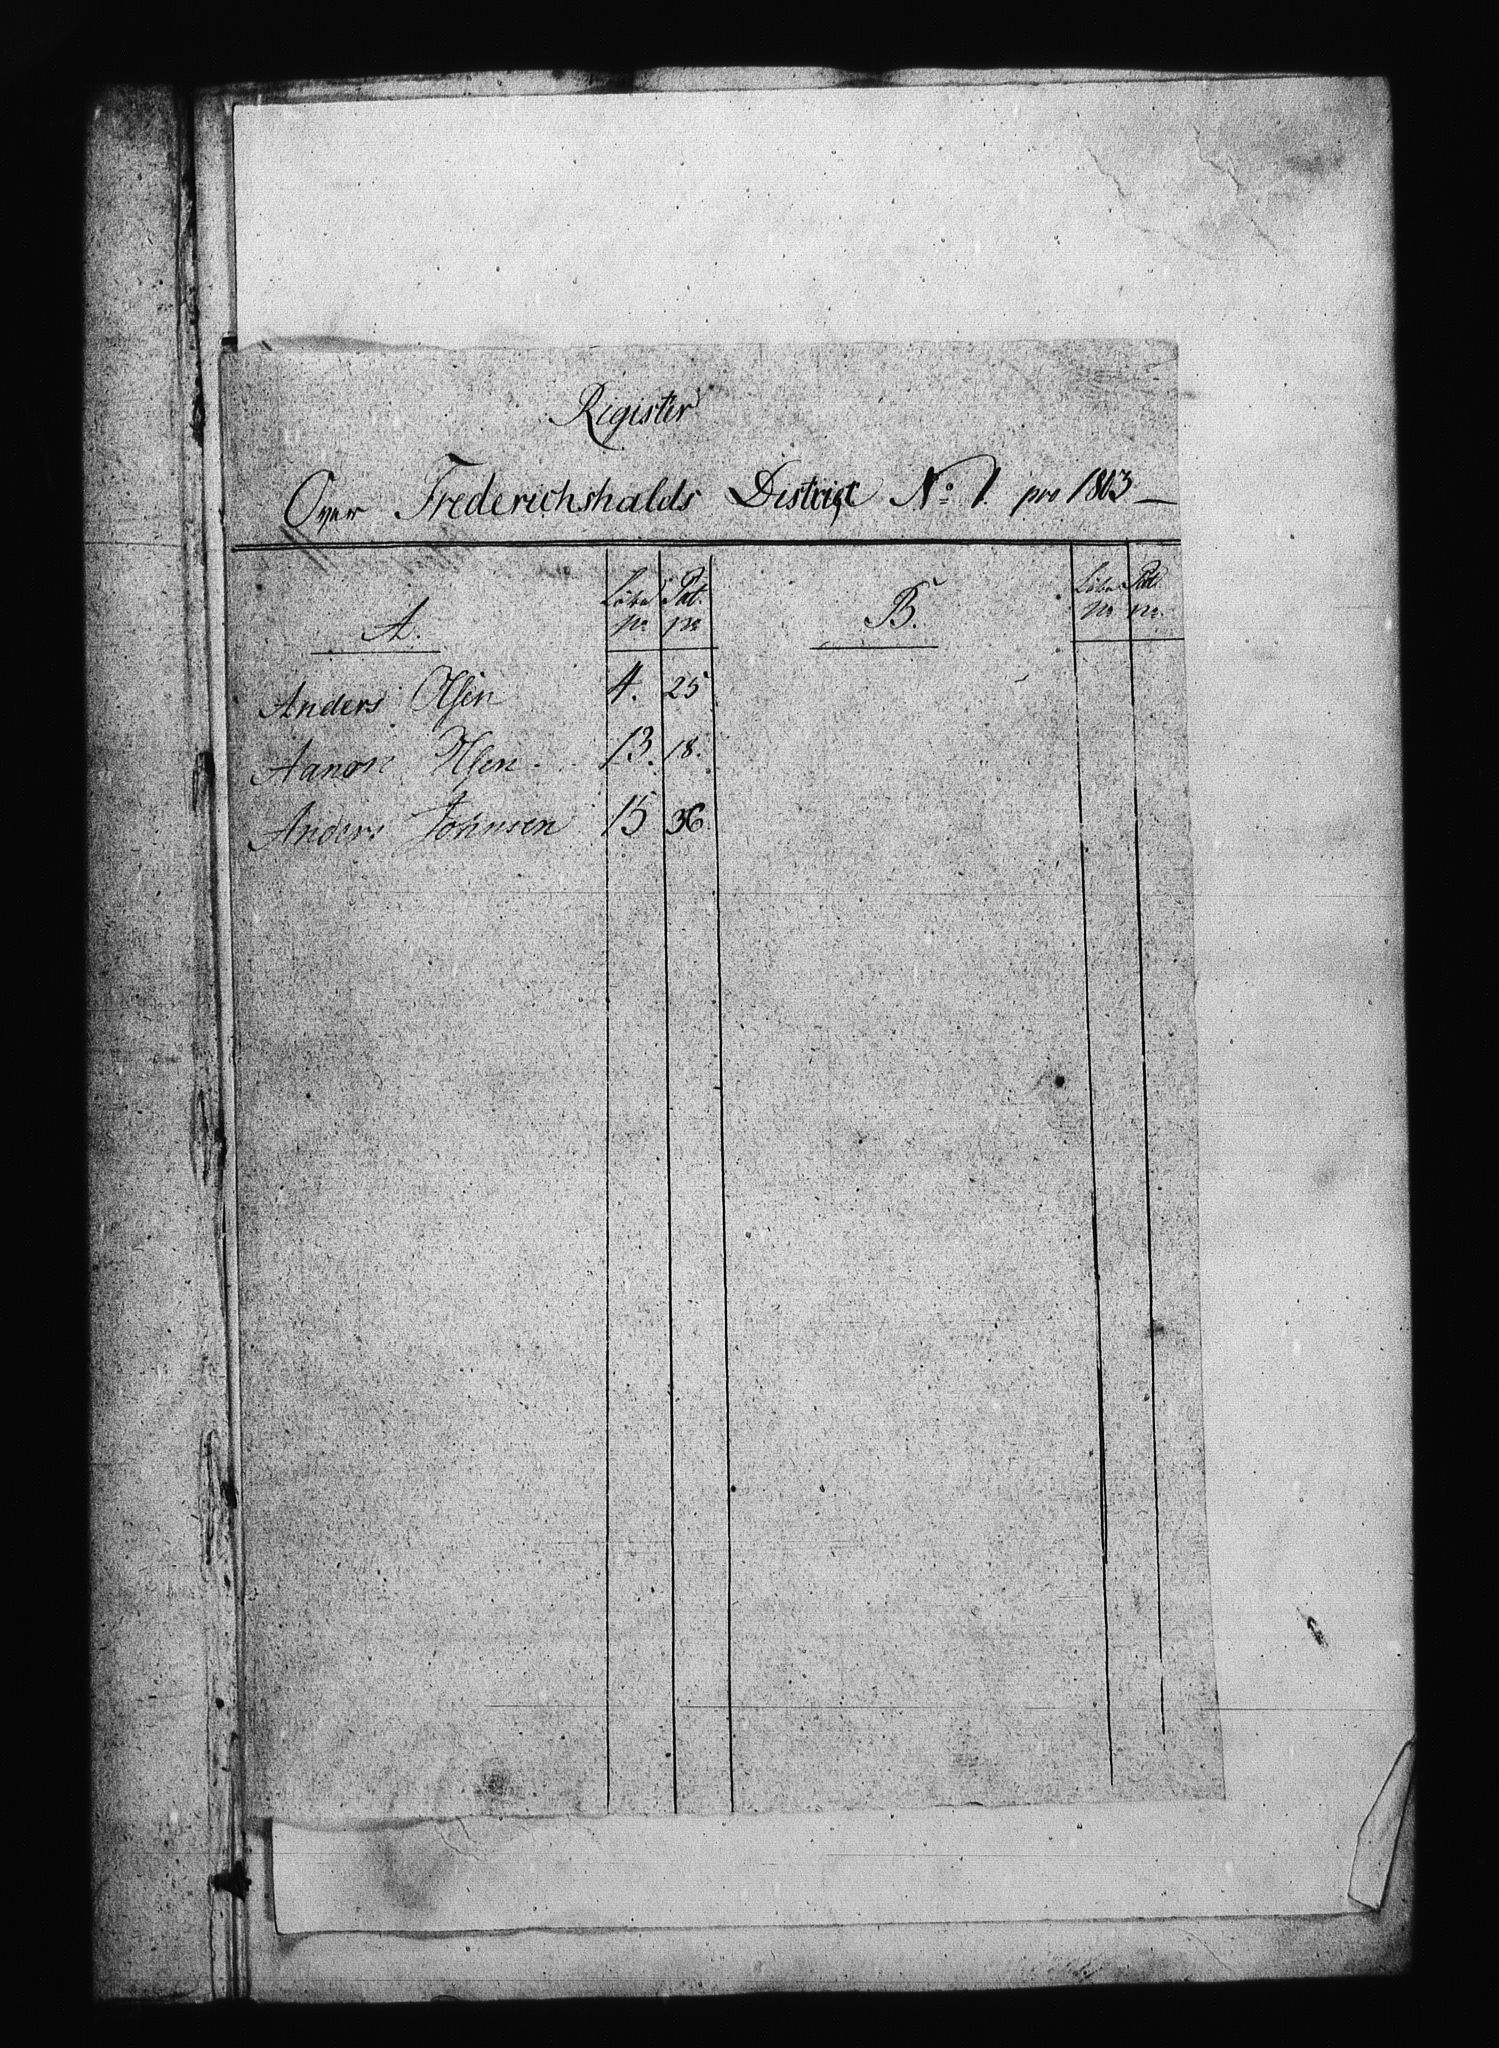 Register
Over Frederichshalds District No. 1. pro 1803
A. Løbe No Pat. No B. Løbe No Pat. No.
Anders Olsen 4. 25
Aanon Olsen 13. 18.
Anders Johnsen 15 36